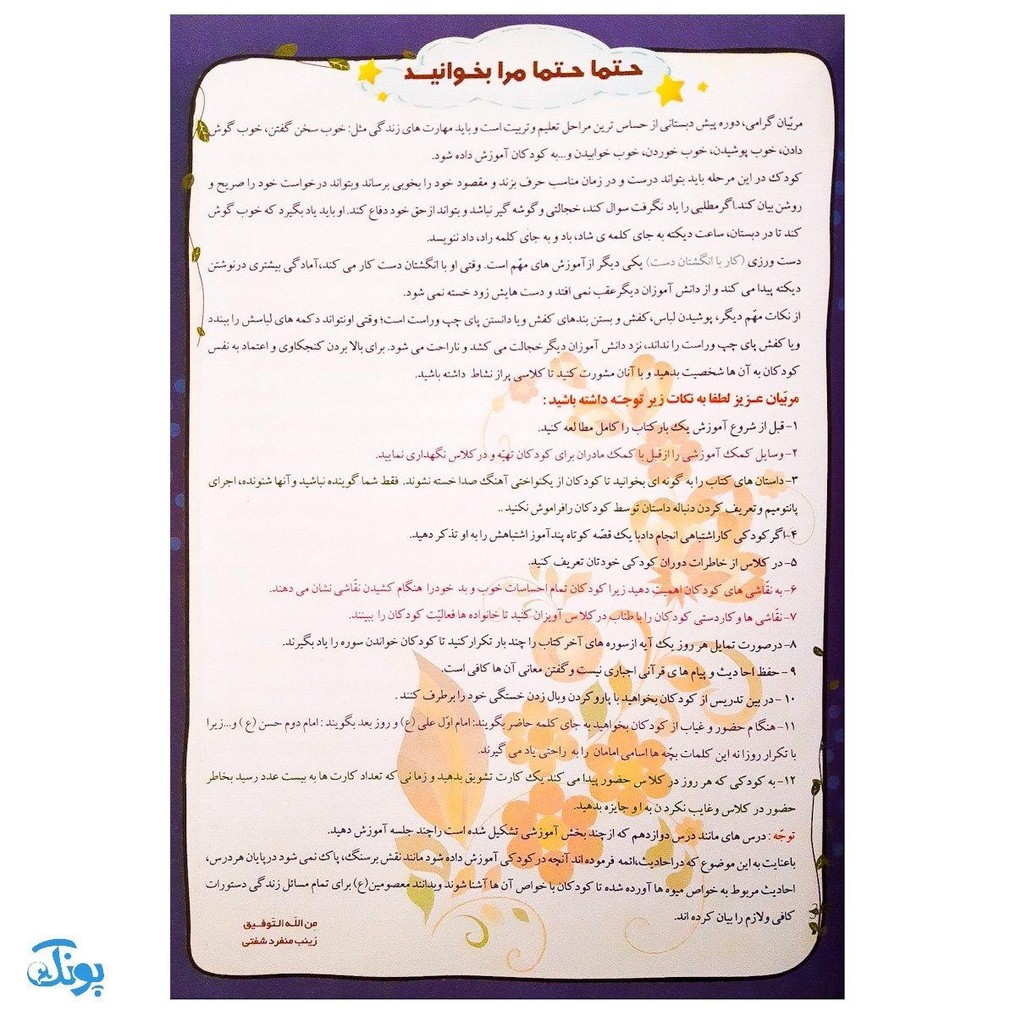 حتما حتما مرا بخوانیـد
مربّیان گرامی، دوره پیش دبستانی از حساس ترین مراحل تعلیم و تربیت است و باید مهارت های زندگی مثل: خوب سخن گفتن، خوب گوش
دادن، خوب پوشیدن، خوب خوردن، خوب خوابیدن و...به کودکان آموزش داده شود.
کودک در این مرحله باید بتواند درست و در زمان مناسب حرف بزند و مقصود خود را بخوبی برساند وبتواند درخواست خود را صریح و
روشن بیان کند.اگر مطلبی را یاد نگرفت سوال کند، خجالتی و گوشه گیر نباشد و بتواند از حق خود دفاع کند. او باید یاد بگیرد که خوب گوش
کند تا در دبستان، ساعت دیکته به جای کلمه ی شاد، باد و به جای کلمه راد، داد ننویسد.
دست ورزی (کار با انگشتان دست) یکی دیگر از آموزش های مهّم است. وقتی او با انگشتان دست کار می کند،آمادگی بیشتری درنوشتن
دیکته پیدا می کند و از دانش آموزان دیگر عقب نمی افتد و دست هایش زود خسته نمی شود.
از نکات مهّم دیگر، پوشیدن لباس،کفش و بستن بندهای کفش ویا دانستن پای چپ وراست است؛ وقتی اونتواند دکمه های لباسش را ببندد
ویا کفش پای چپ وراست را نداند، نزد دانش آموزان دیگر خجالت می کشد و ناراحت می شود. برای بالا بردن کنجکاوی و اعتماد به نفس
کودکان به آن ها شخصیت بدهید و با آنان مشورت کنید تا کلاسی پراز نشاط داشته باشید.
مربّیان عـزیز لطفا به نکات زیر توجّـه داشته باشید :
۱- قبل از شروع آموزش یک بار کتاب را کامل مطالعه کنید.
۲- وسایل کمک آموزشی را ازقبل با کمک مادران برای کودکان تهیّه و در کلاس نگهداری نمایید.
۳- داستان های کتاب را به گونه ای بخوانید تا کودکان از یکنواختی آهنگ صدا خسته نشوند. فقط شما گوینده نباشید و آنها شنونده، اجرای
پانتومیم و تعریف کردن دنباله داستان توسط کودکان رافراموش نکنید ..
۴-اگر کودکی کاراشتباهی انجام دادبا یک قصّه کوتاه پندآموز اشتباهش را به او تذکر دهید.
۵- در کلاس از خاطرات دوران کودکی خودتان تعریف کنید.
۶- به نقّاشی های کودکان اهمیت دهید زیرا کودکان تمام احساسات خوب و بد خودرا هنگام کشیدن نقّاشی نشان می دهند.
۷- نقّاشی ها و کاردستی کودکان را با طناب در کلاس آویزان کنید تا خانواده ها فعالیّت کودکان را ببینند.
۸- درصورت تمایل هر روز یک آیه ازسوره های آخر کتاب را چند بار تکرار کنید تا کودکان خواندن سوره را یاد بگیرند.
۹ - حفظ احادیث و پیام های قرآنی اجباری نیست و گفتن معانی آن ها کافی است.
۱۰ - در بین تدریس از کودکان بخواهید با پاروکردن وبال زدن خستگی خود را برطرف کنند .
۱۱- هنگام حضور و غیاب از کودکان بخواهید به جای کلمه حاضر بگویند: امام اوّل علی (ع) و روز بعد بگویند : امام دوم حسن (ع ) و...زیرا
با تکرار روزانه این کلمات بچّه ها اسامی امامان را به راحتی یاد می گیرند.
۱۲- به کودکی که هر روز در کلاس حضور پیدا می کند یک کارت تشویق بدهید و زمانی که تعداد کارت ها به بیست عدد رسید بخاطر
حضور در کلاس وغایب نکردن به او جایزه بدهید.
توجّه : درس های مانند درس دوازدهم که ازچند بخش آموزشی تشکیل شده است راچند جلسه آموزش دهید.
باعنایت به این موضوع که دراحادیث،ائمه فرموده اند آنچه درکودکی آموزش داده شود مانند نقش برسنگ، پاک نمی شود درپایان هردرس،
احادیث مربوط به خواص میوه ها آورده شده تا کودکان با خواص آن ها آشنا شوند وبدانند معصومین(ع) برای تمام مسائل زندگی دستورات
کافی ولازم را بیان کرده اند.
من اللّه التّوفیـق
زینب منفرد شفتی
پونک